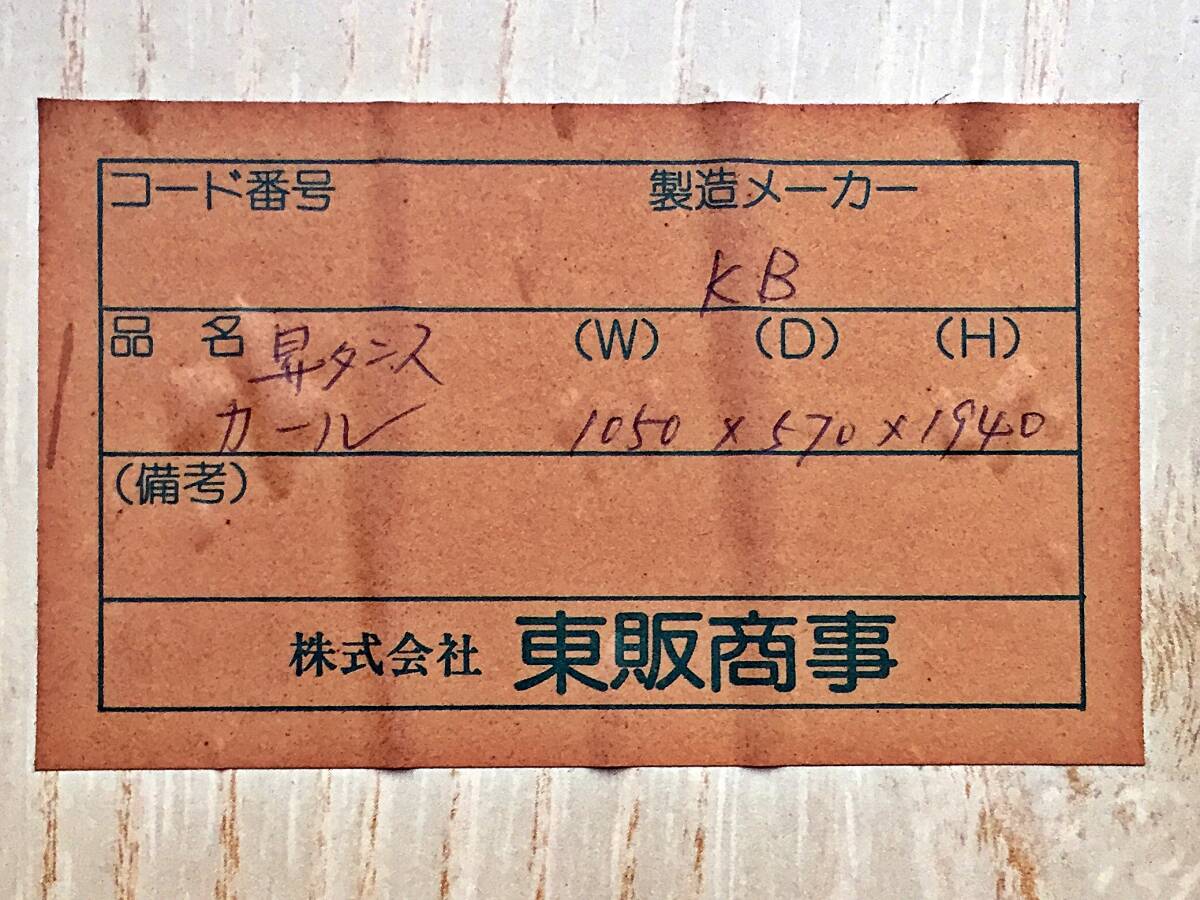 コード番号 製造メーカー
KB
品名 昇タンス (W) (D) (H)
カール 1050 × 570 × 1940
(備考)
株式会社 東販商事